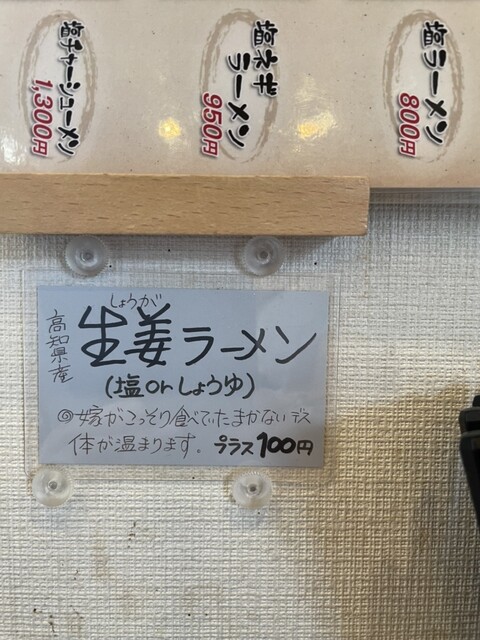 塩ラーメン
800円
塩ネギラーメン
950円
塩チャーシューメン
1,300円
高知県産
しょうが
生姜ラーメン
(塩orしょうゆ)
◎嫁がこっそり食べていたまかないデス
体が温まります。プラス100円